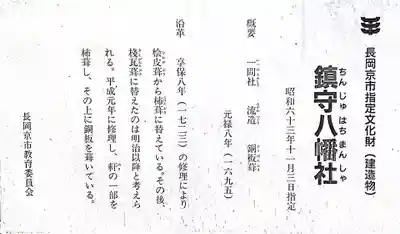 長岡京市指定文化財(建造物)
鎮守八幡社
ちんじゅはちまんしゃ
昭和六十三年十一月三日指定
概要 一間社 流造 銅板葺
元禄八年(一六九五)
沿革 享保八年(一七二三)の修理により
桧皮葺から柿葺に替えている。その後、
桟瓦葺に替えたのは明治以降と考えら
れる。平成元年に修理し、軒の一部を
柿葺し、その上に銅板を葺いている。
長岡京市教育委員会